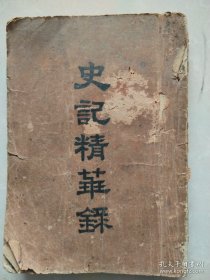 史記精華錄